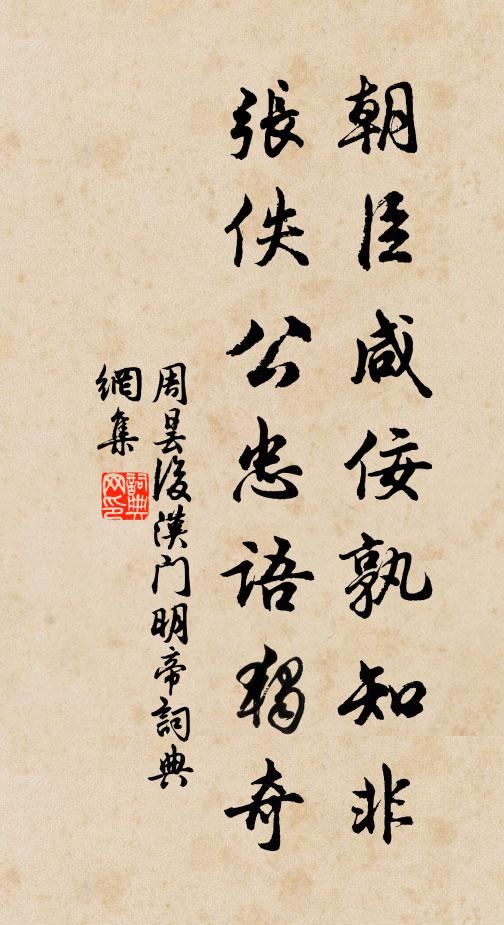 朝臣咸佞孰知非
張佚公忠語獨奇
周曇後漢門明帝詞典
網集
詞典
网印